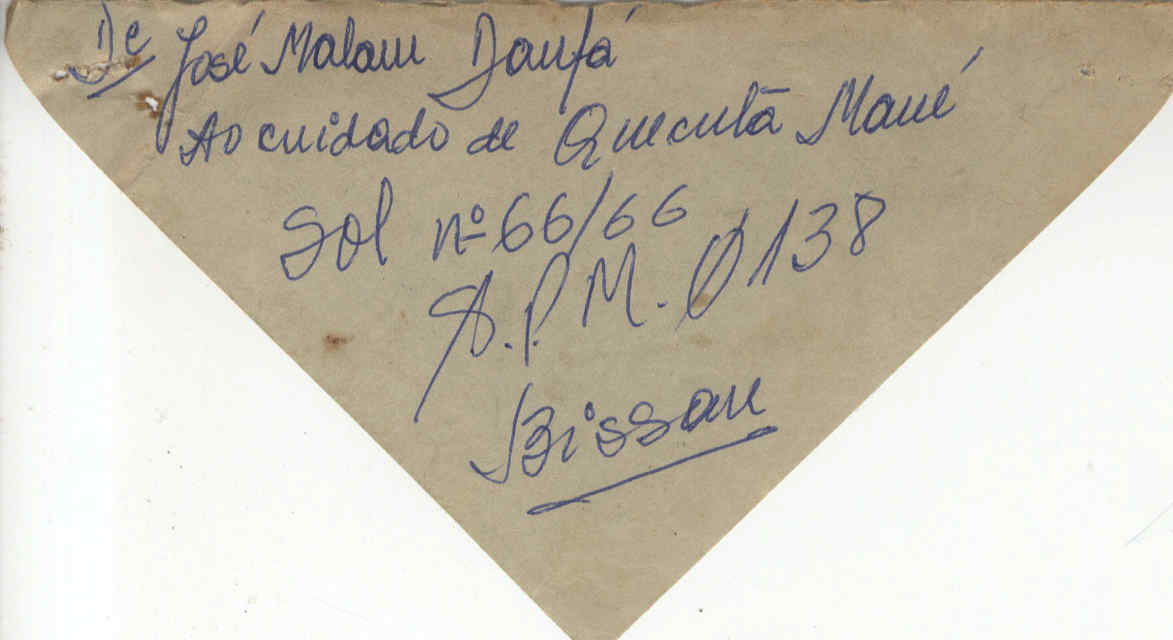 De José Malam Danfá
Ao cuidado de Quecutã Mané
Sol nº 66/66
S.P.M. 0138
Bissau